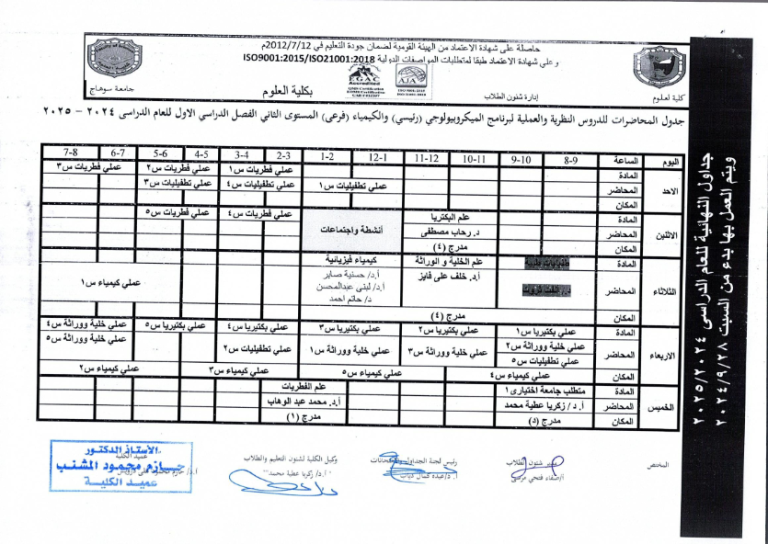 حاصلة على شهادة الاعتماد من الهيئة القومية لضمان جودة التعليم في 2012/7/12م
وعلى شهادة الاعتماد طبقا لمتطلبات المواصفات الدولية ISO9001:2015/ISO21001:2018
EGAC
AJA
كلية العلوم
إدارة شئون الطلاب
بكلية العلوم
جامعة سوهاج
جدول المحاضرات للدروس النظرية والعملية لبرنامج الميكروبيولوجي (رئيسي) والكيمياء (فرعى) المستوى الثاني الفصل الدراسي الاول للعام الدراسى ٢٠٢٤ - ٢٠٢٥
اليوم الساعة 8-9 9-10 10-11 11-12 12-1 1-2 2-3 3-4 4-5 5-6 6-7 7-8
الاحد
المادة عملي فطريات س١ عملي فطريات س٢ عملي فطريات س٣
المحاضر عملي تطفيليات س١ عملي تطفيليات س٤ عملي تطفيليات س٣
المكان
الاثنين
المادة علم البكتريا أنشطة واجتماعات عملي فطريات س٤ عملي فطريات س٥
المحاضر د. رحاب مصطفى
المكان مدرج (٤)
الثلاثاء
المادة علم الخلية و الوراثة كيمياء فيزيائية عملي كيمياء س١
المحاضر أ.د. خلف على فايز أ.د/ حسنية صابر
أ.د/ لبنى عبدالمحسن
د/ حاتم احمد
المكان مدرج (٤)
الاربعاء
المادة عملي بكتيريا س١ عملي بكتيريا س٢ عملي بكتيريا س٣ عملي بكتيريا س٤ عملي بكتيريا س٥ عملي خلية ووراثة س٤
المحاضر عملي خلية ووراثة س٢ عملي خلية ووراثة س٣ عملي خلية ووراثة س١ عملي تطفيليات س٢ عملي خلية ووراثة س٥
عملي تطفيليات س٥
المكان عملي كيمياء س٤ عملي كيمياء س٥ عملي كيمياء س٣ عملي كيمياء س٢
الخميس
المادة متطلب جامعة اختيارى١ علم الفطريات
المحاضر أ.د/ زكريا عطية محمد أ.د. محمد عبد الوهاب
المكان مدرج (د) مدرج (١)
المختص
شئون الطلاب
رئيس لجنة الجداول
وكيل الكلية لشئون التعليم والطلاب
أ.د/ زكريا عطية محمد
عميد الكلية
الأستاذ الدكتور
حازم محمود المشنب
عميد الكلية
جداول النهائية للعام الدراسى ٢٠٢٥/٢٠٢٤
ويتم العمل بها بدء من السبت ٢٠٢٤/٩/٢٨